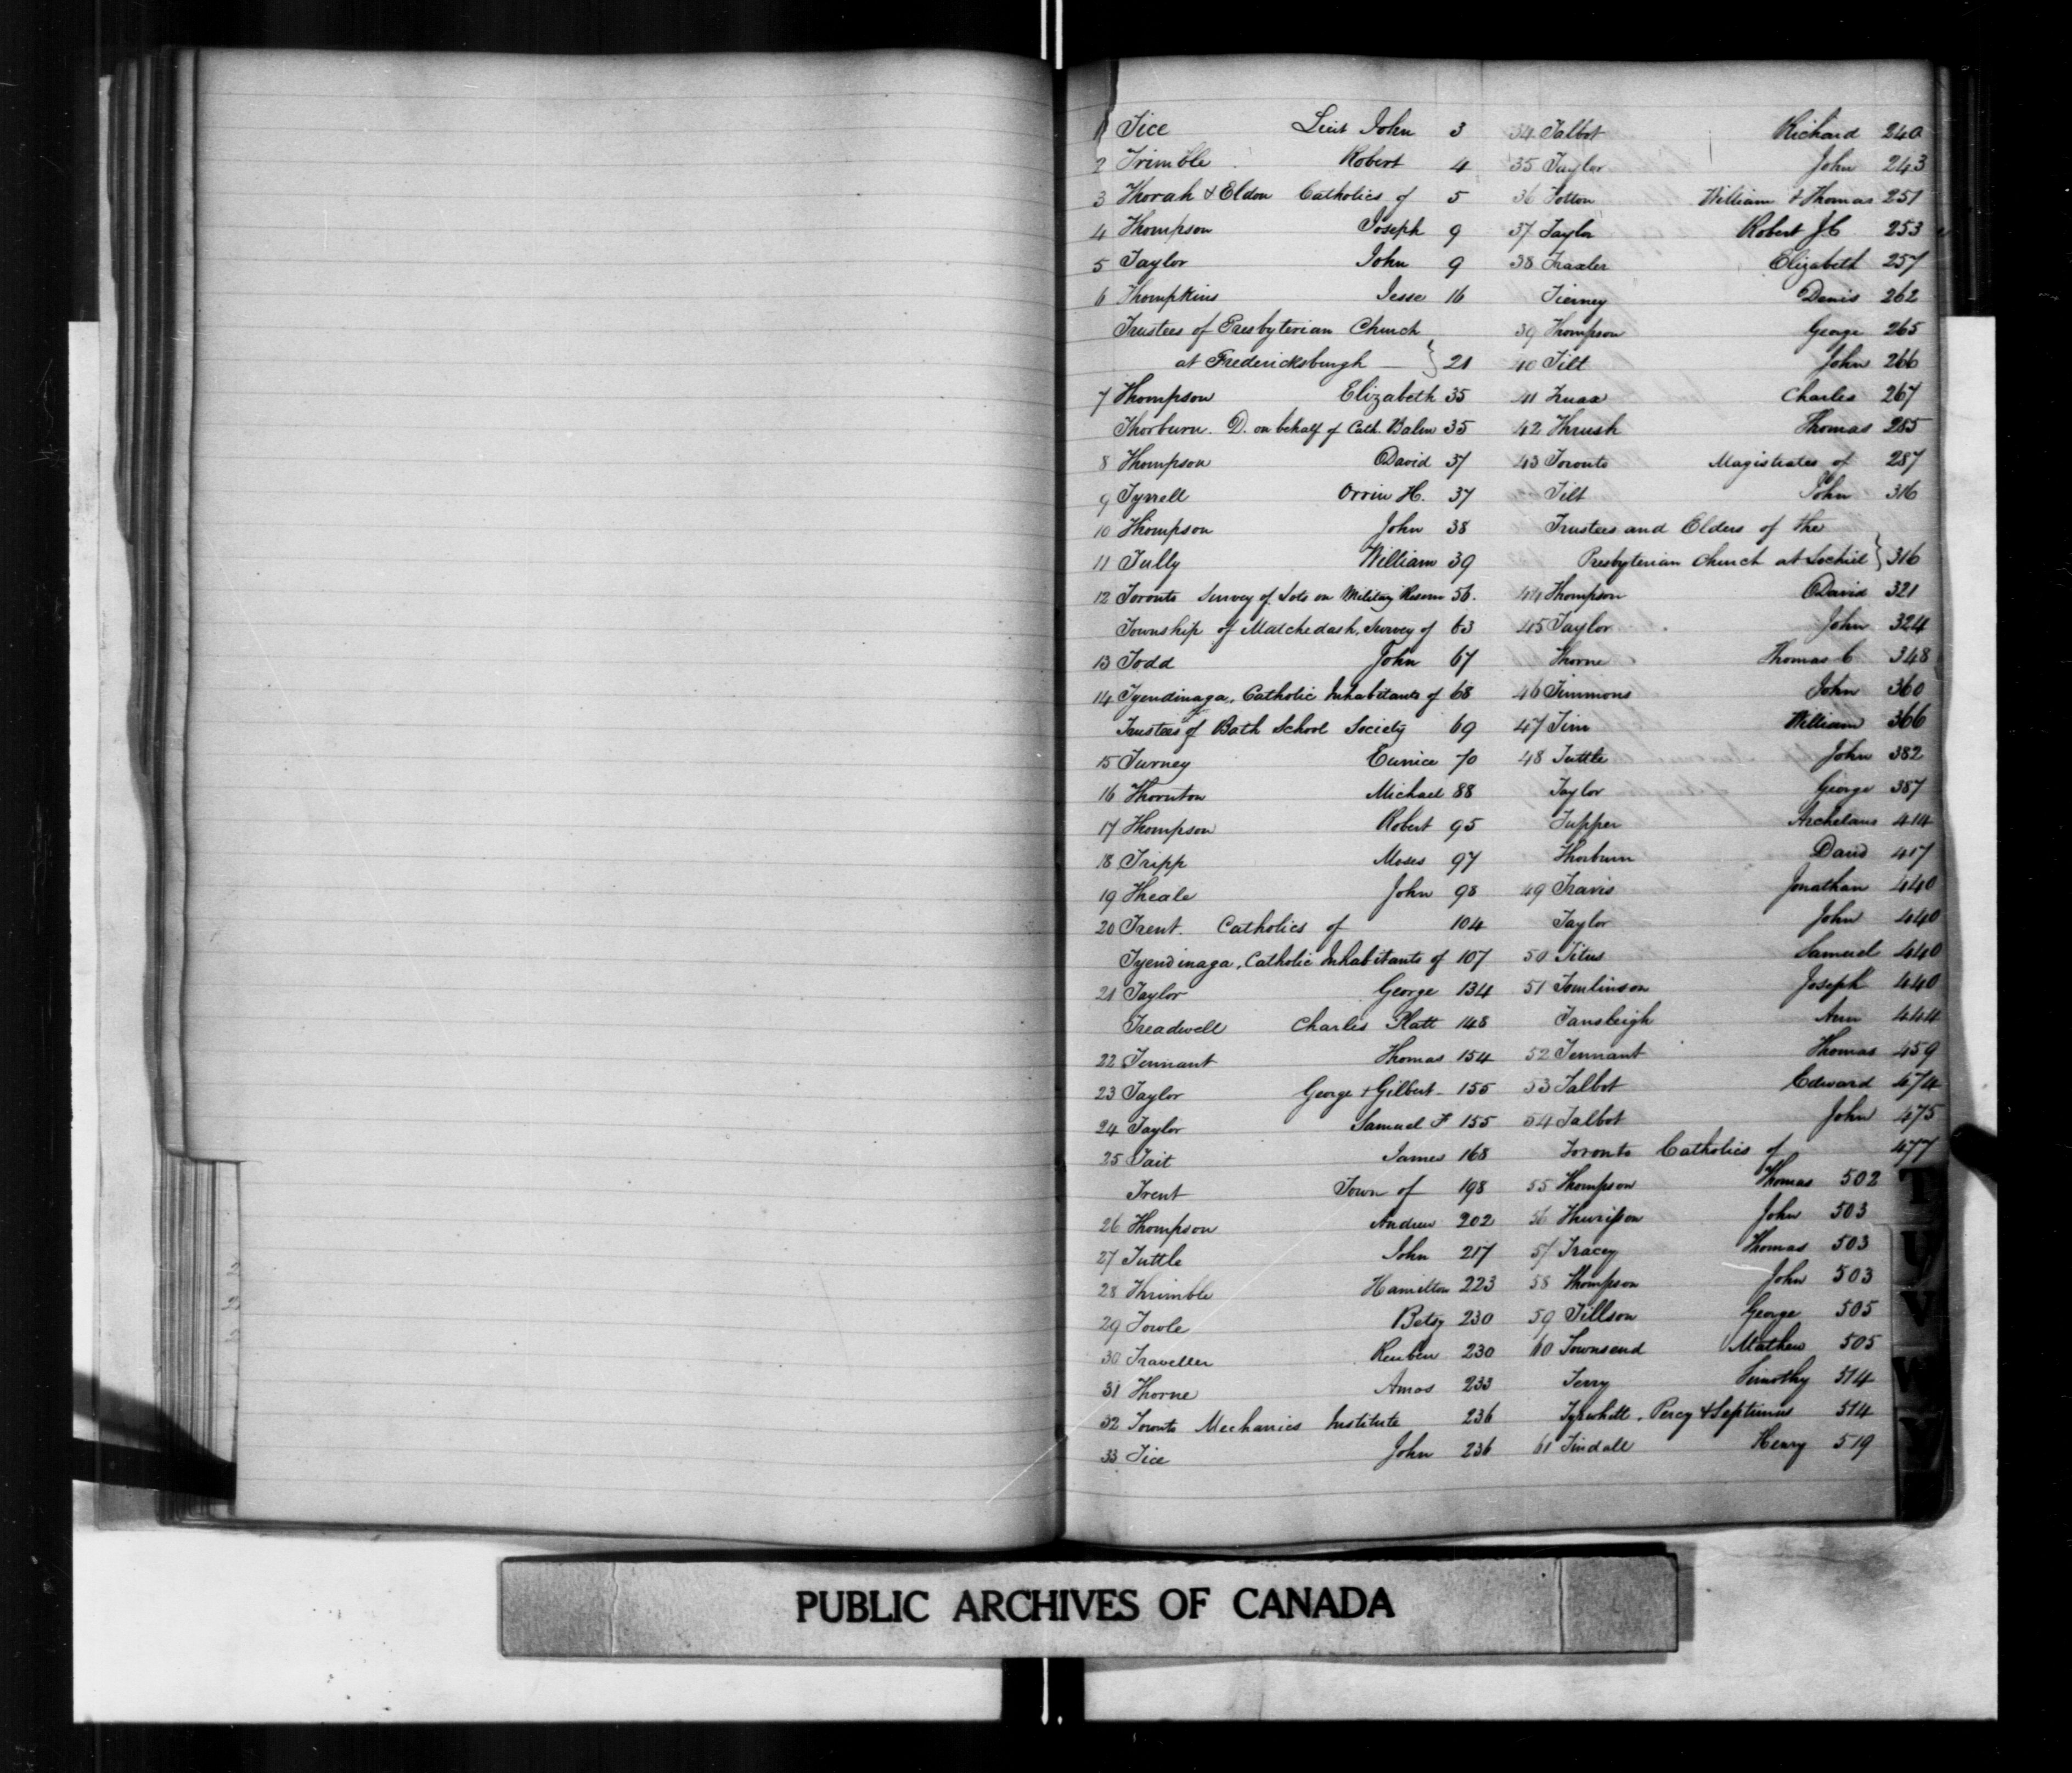 1 Tice Lieut John 3
2 Trimble Robert 4
3 Thorah & Eldon Catholics of 5
4 Thompson Joseph 9
5 Taylor John 9
6 Thompkins Jesse 16
Trustees of Presbyterian Church
at Fredericksburgh } 21
7 Thompson Elizabeth 35
Thorburn. D. on behalf of Cath. Balm 35
8 Thompson David 37
9 Tyrrell Orrin H. 37
10 Thompson John 38
11 Tully William 39
12 Toronto Survey of Lots on Military Reserve 56.
Township of Matchedash, Survey of 63
13 Todd John 67
14 Tyendinaga, Catholic Inhabitants of 68
Trustees of Bath School Society 69
15 Turney Eunice 70
16 Thornton Michael 88
17 Thompson Robert 95
18 Tripp Moses 97
19 Theale John 98
20 Trent. Catholics of 104
Tyendinaga, Catholic Inhabitants of 107
21 Taylor George 134
Treadwell Charles Platt 148
22 Tennant Thomas 154
23 Taylor George & Gilbert 155
24 Taylor Samuel F 155
25 Tait James 168
Trent Town of 198
26 Thompson Andrew 202
27 Tuttle John 217
28 Thrimble Hamilton 223
29 Towle Betsy 230
30 Traveller Reuben 230
31 Thorne Amos 233
32 Toronto Mechanics Institute 236
33 Tice John 236
34 Talbot Richard 240
35 Taylor John 243
36 Totton William & Thomas 251
37 Taylor Robert 253
38 Traxler Elizabeth 257
Tierney Denis 262
39 Thompson George 265
40 Tilt John 266
41 Truax Charles 267
42 Thrush Thomas 285
43 Toronto Magistrates of 287
Tilt John 316
Trustees and Elders of the
Presbyterian Church at Lochiel } 316
44 Thompson David 321
45 Taylor John 324
Thorne Thomas C 348
46 Timmons John 360
47 Tim William 366
48 Tuttle John 382
Taylor George 387
Tupper Archelaus 414
Thorburn David 417
49 Travis Jonathan 440
Taylor John 440
50 Titus Samuel 440
51 Tomlinson Joseph 440
Tansleigh Ann 444
52 Tennant Thomas 459
53 Talbot Edward 474
54 Talbot John 475
Toronto Catholics of 477
55 Thompson Thomas 502
56 John 503
57 Tracey Thomas 503
58 Thompson John 503
59 Tillson George 505
60 Townsend Mathew 505
Terry Timothy 514
Tyrwhitt, Percy & Septimus 514
61 Tindall Henry 519
T
U
V
W
Y
PUBLIC ARCHIVES OF CANADA